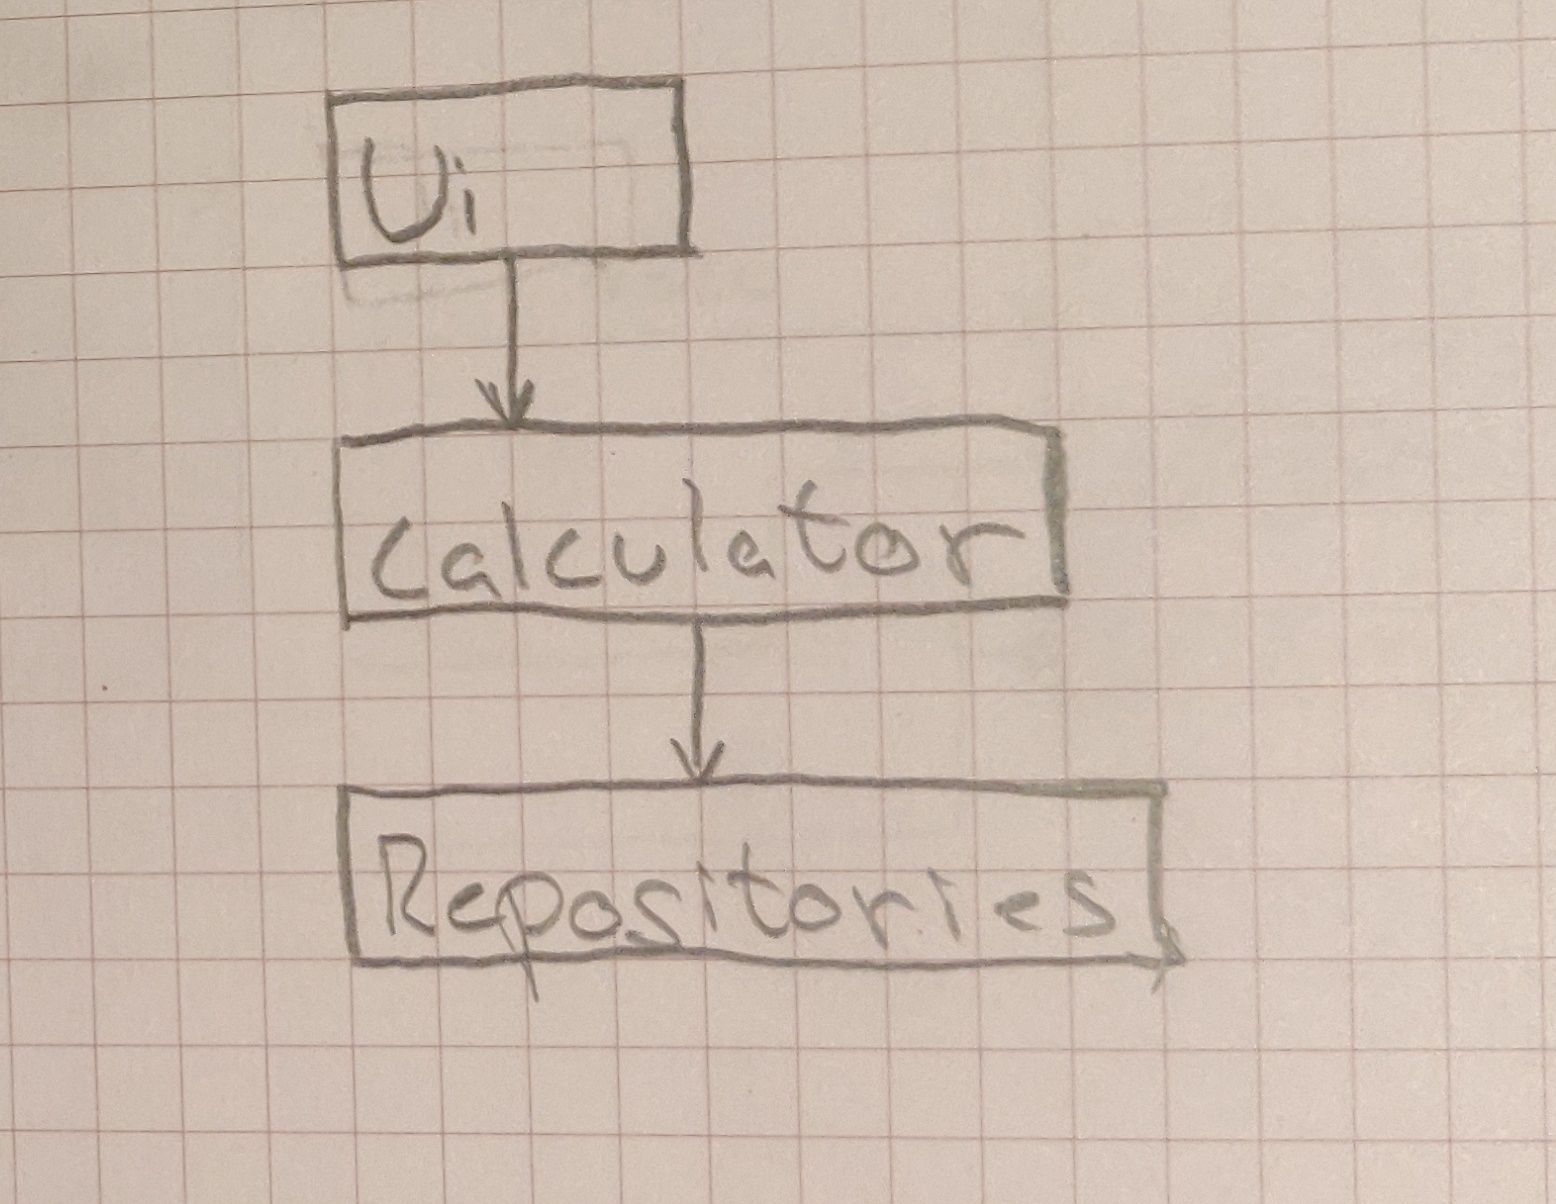 Ui
Calculator
Repositories